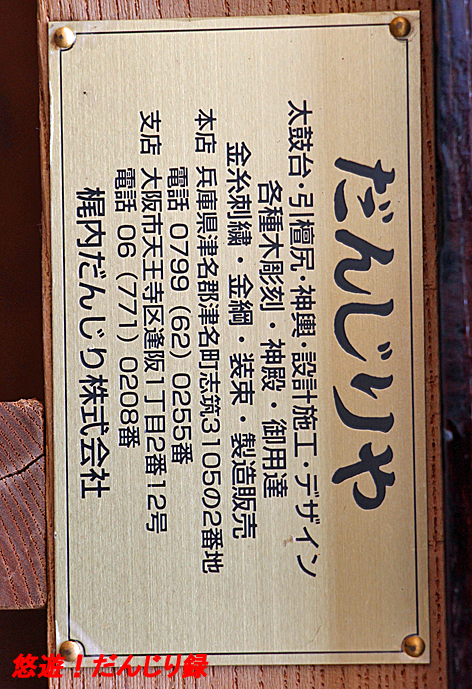 だんじりや
太鼓台・引檀尻・神輿・設計施工・デザイン
各種木彫刻・神殿・御用達
金糸刺繍・金綱・装束・製造販売
本店 兵庫県津名郡津名町志筑3105の2番地
電話 0799(62)0255番
支店 大阪市天王寺区逢阪1丁目2番12号
電話 06(771)0208番
梶内だんじり株式会社
悠遊！だんじり録